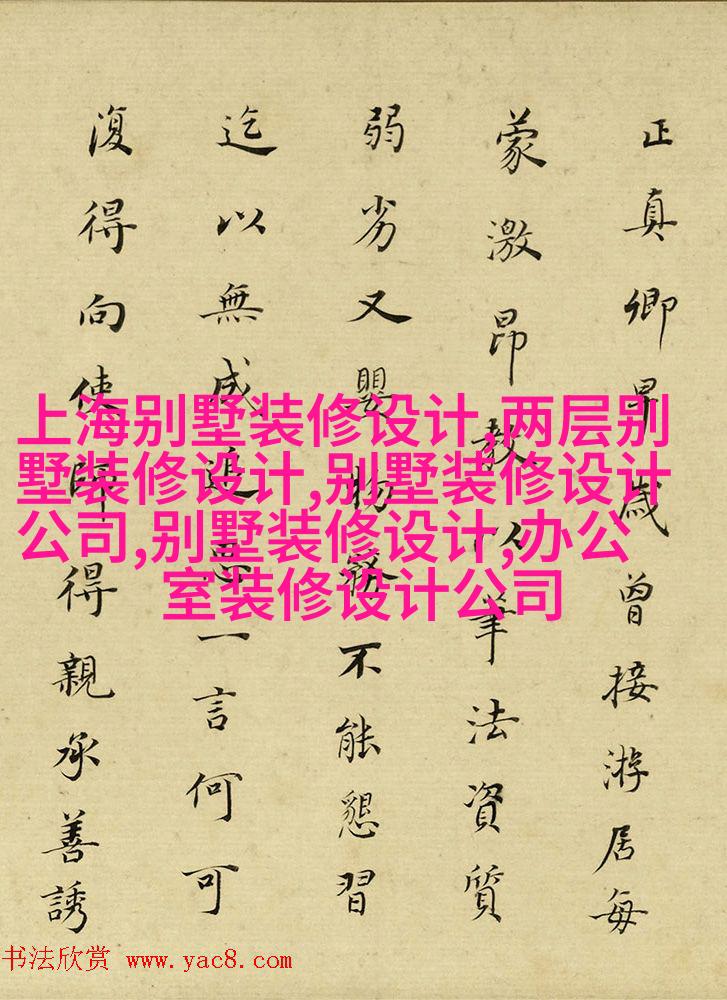 正真卿早歲曾接游居每
蒙激昂教以筆法資質
弱劣又嬰物務不能懇習
迄以無成追思一言何可
復得向使師得親承善誘
上海别墅装修设计,两层别
墅装修设计,别墅装修设计
公司,别墅装修设计,办公
室装修设计公司
书法欣赏 www.yac8.com